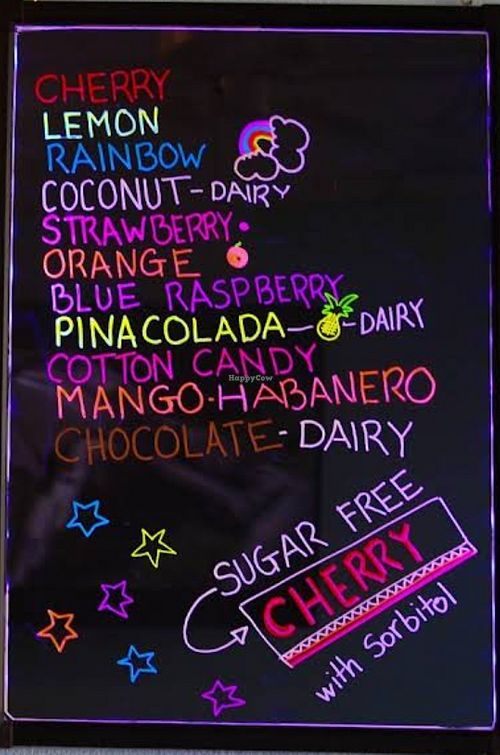 CHERRY
LEMON
RAINBOW
COCONUT - DAIRY
STRAWBERRY.
ORANGE
BLUE RASPBERRY
PINACOLADA - - DAIRY
COTTON CANDY
HappyCow
MANGO-HABANERO
CHOCOLATE - DAIRY
SUGAR FREE
CHERRY
with Sorbitol